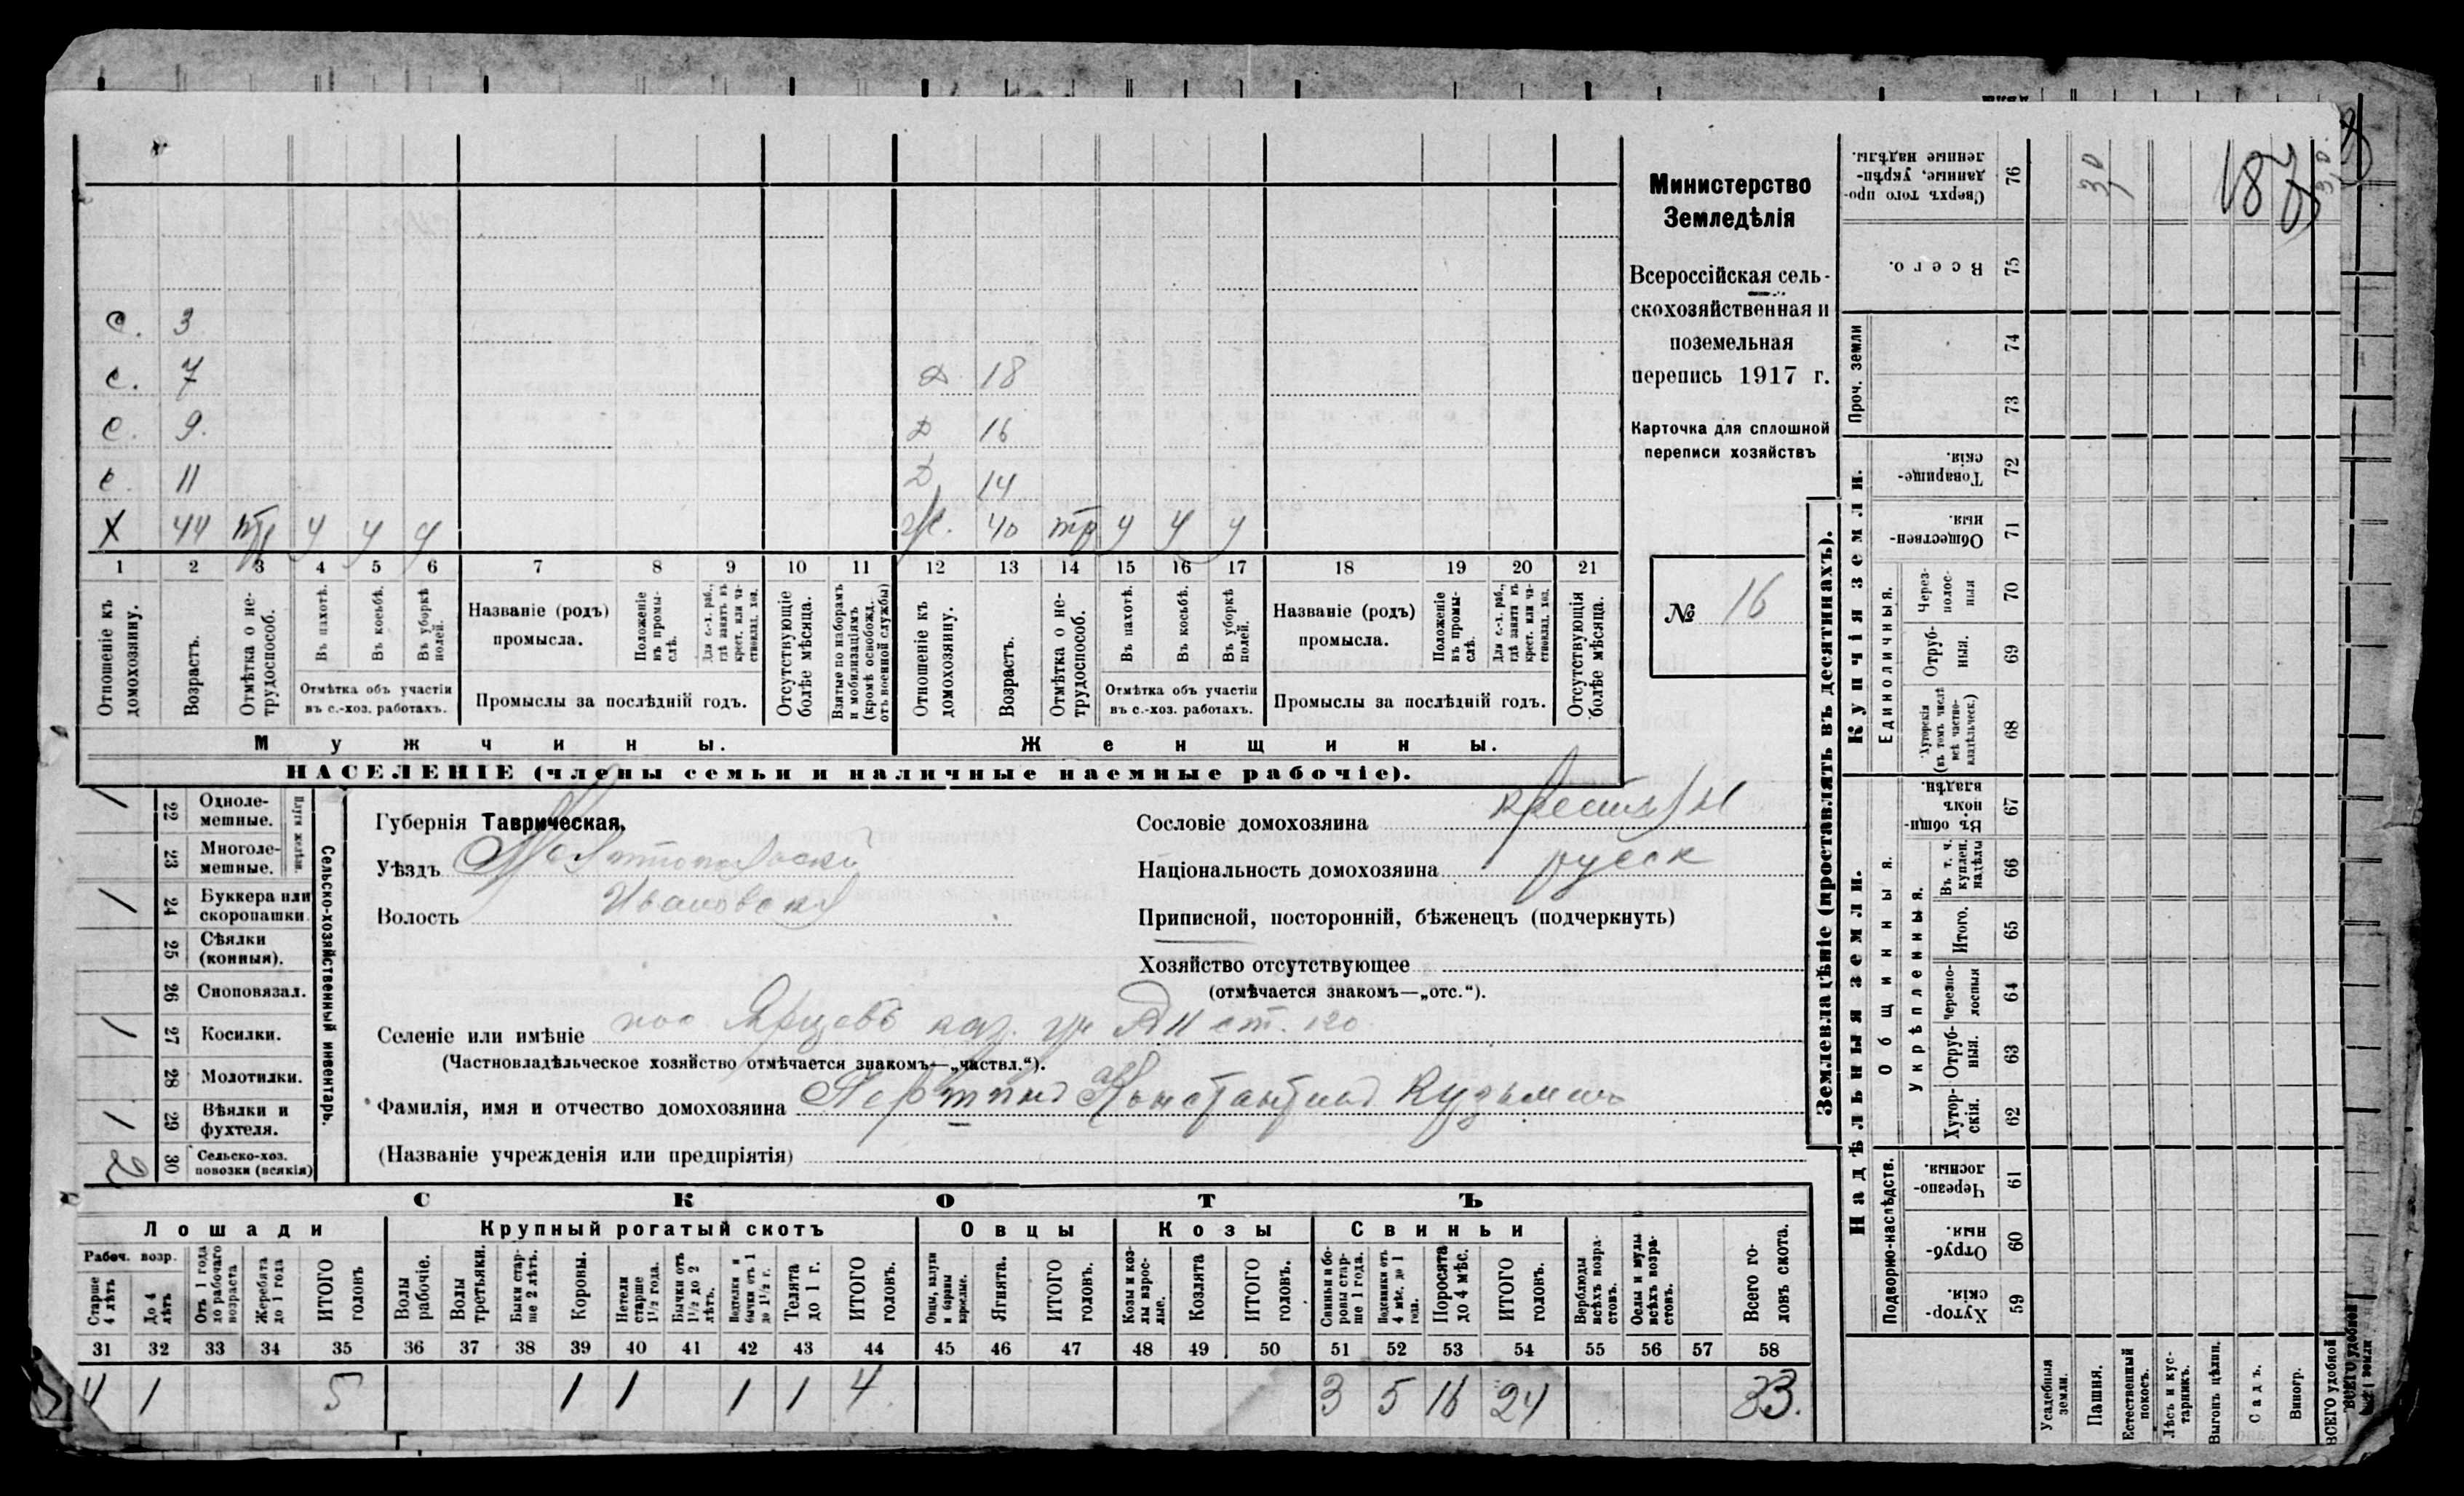 с. 3
с. 7 Д 18
с. 9. Д 16
с. 11 Д 14
Х 44 тр у у у ж. 40 тр у у у
1 2 3 4 5 6 7 8 9 10 11 12 13 14 15 16 17 18 19 20 21
Отношеніе къ домохозяину.
Возрастъ.
Отмѣтка о не-трудоспособ.
Въ пахотѣ.
Въ косьбѣ.
Въ уборкѣ полей.
Отмѣтка объ участіи въ с.-хоз. работахъ.
Названіе (родъ) промысла.
Положеніе въ промы-слѣ.
Для с.-х. раб., гдѣ занятъ въ крест. или ча-стновлад. хоз.
Промыслы за послѣдній годъ.
Отсутствующіе болѣе мѣсяца.
Взятые по наборамъ и мобилизаціямъ (кромѣ освобожд. отъ военной службы)
Отношеніе къ домохозяину.
Возрастъ.
Отмѣтка о не-трудоспособ.
Въ пахотѣ.
Въ косьбѣ.
Въ уборкѣ полей.
Отмѣтка объ участіи въ с.-хоз. работахъ.
Названіе (родъ) промысла.
Положеніе въ промы-слѣ.
Для с.-х. раб., гдѣ занята въ крест. или ча-стновлад. хоз.
Промыслы за послѣдній годъ.
Отсутствующія болѣе мѣсяца.
Мужчины. Женщины.
НАСЕЛЕНІЕ (члены семьи и наличные наемные рабочіе).
Министерство
Земледѣлія
Всероссійская сель-
скохозяйственная и
поземельная
перепись 1917 г.
Карточка для сплошной
переписи хозяйствъ
№ 16
1 22 Одноле-мешные.
23 Многоле-мешные.
Плуги желѣзн.
1 24 Буккера или скоропашки.
25 Сѣялки (конныя).
26 Сноповязал.
1 27 Косилки.
28 Молотилки.
1 29 Вѣялки и фухтеля.
2 30 Сельско-хоз. повозки (всякія)
Сельско-хозяйственный инвентарь.
Губернія Таврическая.
Уѣздъ Мелитопольский
Волость Ивановская
Сословіе домохозяина крестьян
Національность домохозяина русск
Приписной, посторонній, бѣженецъ (подчеркнуть)
Хозяйство отсутствующее
(отмѣчается знакомъ—„отс.“).
Селеніе или имѣніе пос. каз.
(Частновладѣльческое хозяйство отмѣчается знакомъ—„частвл.“).
Фамилія, имя и отчество домохозяина Константинъ Кузьминъ
(Названіе учрежденія или предпріятія)
СКОТЪ
Лошади Крупный рогатый скотъ Овцы Козы Свиньи
Рабоч. возр.
Старше 4 лѣтъ
До 4 лѣтъ
Отъ 1 года до рабочаго возраста
Жеребята до 1 года
ИТОГО головъ
Волы рабочіе.
Волы третьяки.
Быки стар-ше 2 лѣтъ.
Коровы.
Нетели старше 1½ года.
Бычки отъ 1½ до 2 лѣтъ.
Подтелки и бычки отъ 1 до 1½ г.
Телята до 1 г.
ИТОГО головъ.
Овцы, валухи и бараны взрослые.
Ягнята.
ИТОГО головъ.
Козы и коз-лы взрос-лые.
Козлята
ИТОГО головъ.
Свиньи и бо-ровы стар-ше 1 года.
Подсвинки отъ 4 мѣс. до 1 года.
Поросята до 4 мѣс.
ИТОГО головъ.
Верблюды всѣхъ возра-стовъ.
Ослы и мулы всѣхъ возра-стовъ.
Всего го-ловъ скота.
31 32 33 34 35 36 37 38 39 40 41 42 43 44 45 46 47 48 49 50 51 52 53 54 55 56 57 58
4 1 5 1 1 1 1 4 3 5 16 24 33.
Землевладѣніе (проставлять въ десятинахъ).
Сверхъ того про-данные, укрѣп-ленные надѣлы. 76 3,0
187
Всего. 75
74
73
Проч. земли
Товарище-скія. 72
Обществен-ныя. 71
Через-полос-ныя 70
Отруб-ныя. 69
Хуторскія (въ томъ числѣ всѣ частно-владѣльческ.) 68
Единоличныя.
Купчія земли.
Въ общин-номъ владѣн. 67
Въ т. ч. куплен. надѣлы 66
Итого. 65
Черезпо-лосныя 64
Отруб-ныя. 63
Хутор-скія. 62
Укрѣпленныя.
Общинныя.
Черезпо-лосныя 61
Отруб-ныя. 60
Хутор-скія. 59
Подворно-наслѣдств.
Надѣльныя земли.
Усадебныя земли.
Пашня.
Естественный покосъ.
Лѣсъ и кус-тарникъ.
Выгонъ цѣлин.
Садъ.
Виногр.
ВСЕГО удобной